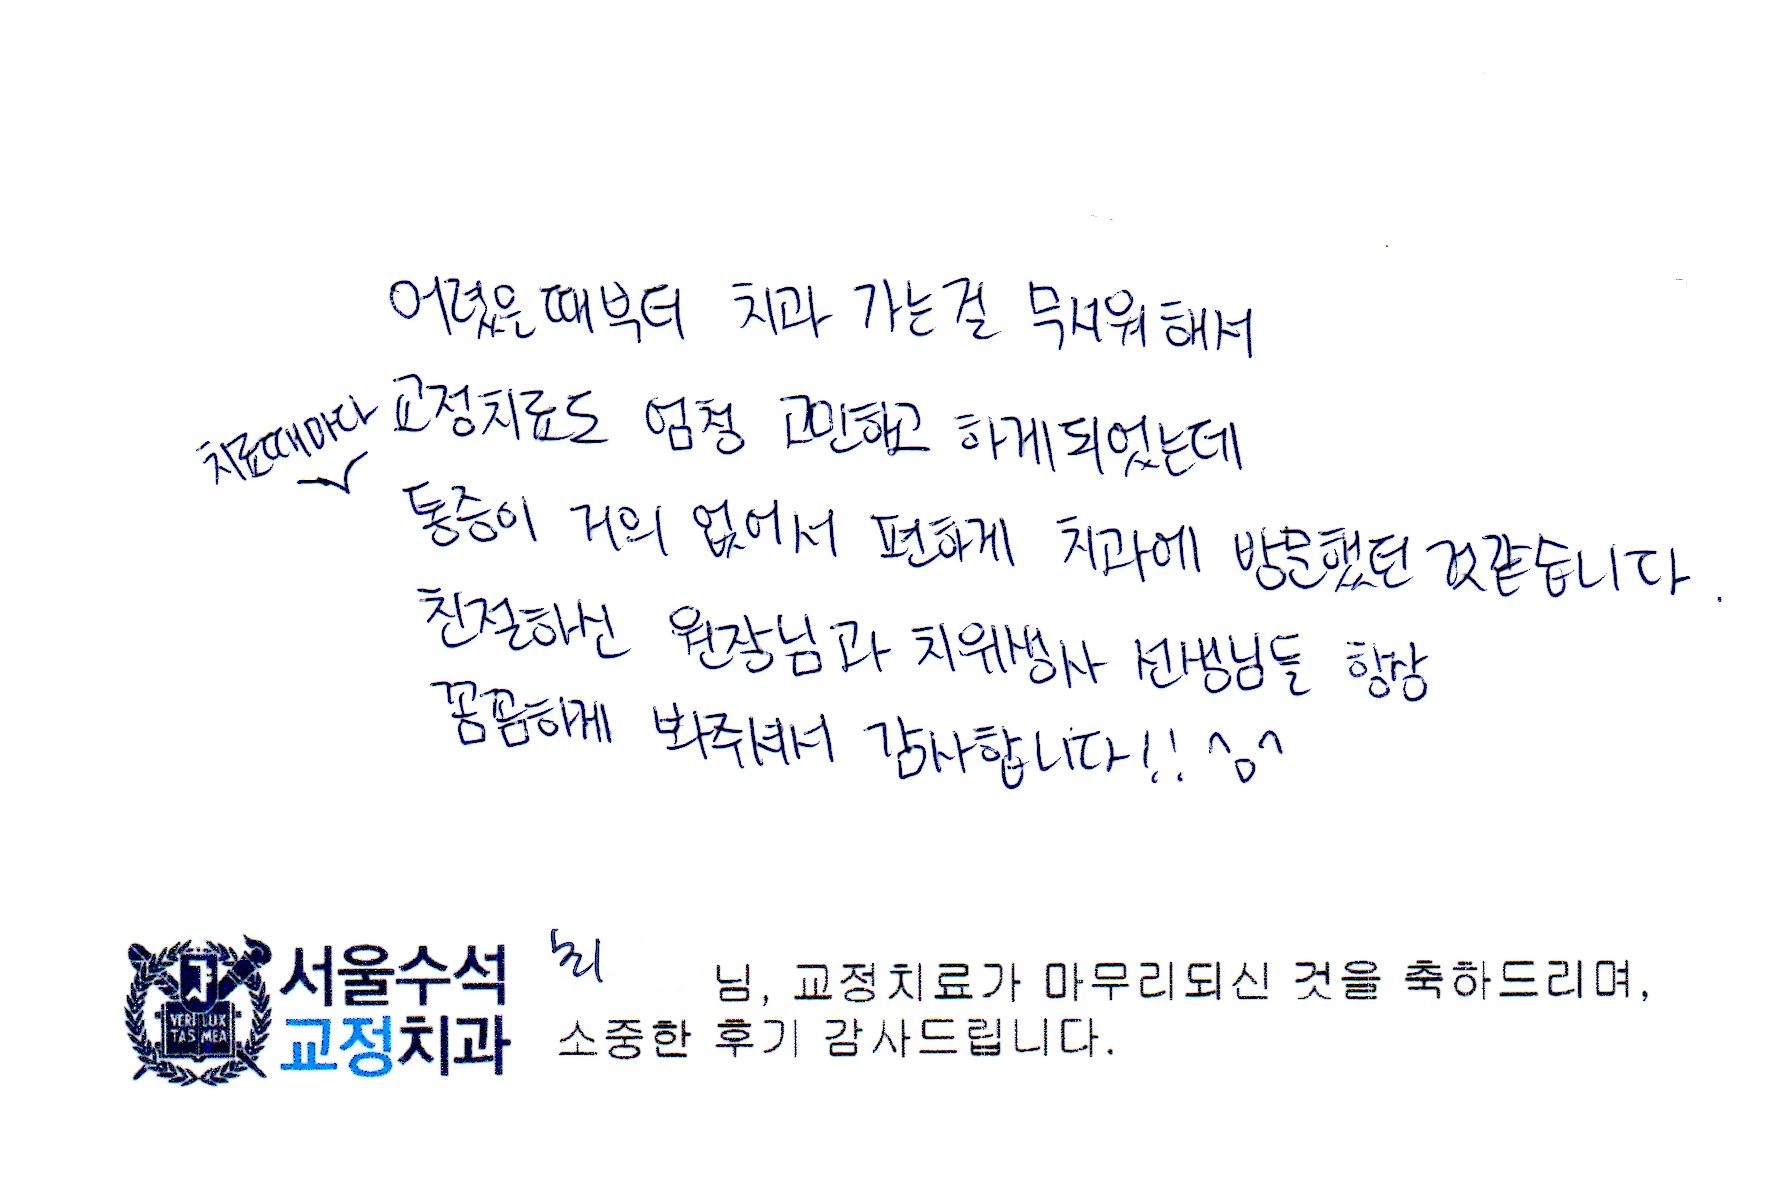 어렸은때부터 치과 가는걸 무서워해서
교정치료도 엄청 고민하고 하게되었는데
치료때마다
통증이 거의 없어서 편하게 치과에 방문했던 것같습니다.
친절하신 원장님과 치위생사 선생님들 항상
꼼꼼하게 봐주셔서 감사합니다!! ^o^
서울수석
교정치과
VERI LUX
TAS MEA
님, 교정치료가 마무리되신 것을 축하드리며,
소중한 후기 감사드립니다.